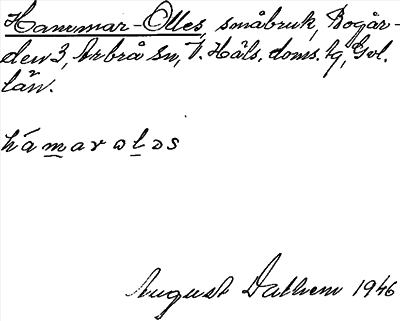 Hammar-Olles, småbruk, Bogår-
den 3, Arbrå sn, V. Häls. doms. tg, Gvl.
län.
hámarolɘs
August Dalhem 1946